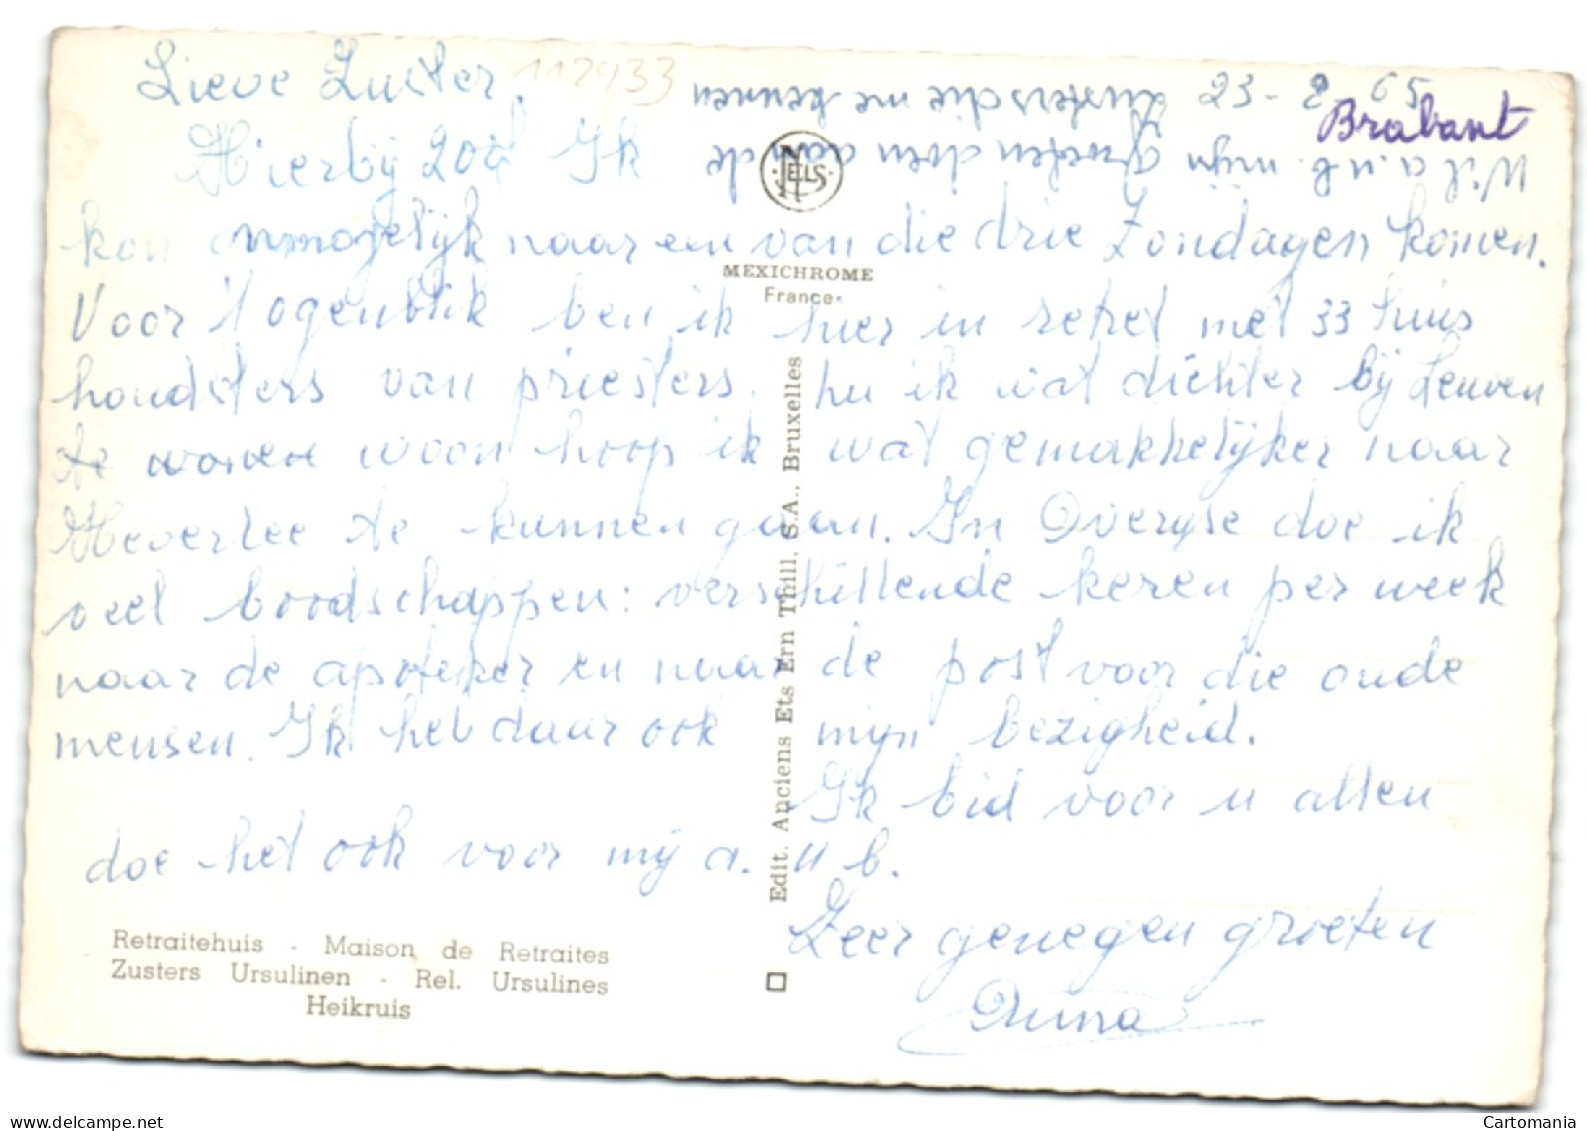 Lieve Zuster,
112933
23-8 65
Brabant
Hierbij 200f Ik
kon onmogelijk naar een van die drie Zondagen komen.
Voor 't ogenblik ben ik hier in retret met 33 huis
houdsters van priesters. nu ik wat dichter bij Leuven
te wonen woon hoop ik wat gemakkelijker naar
Heverlee te kunnen gaan. In Overijse doe ik
veel boodschappen: verschillende keren per week
naar de apoteker en naar de post voor die oude
mensen. Ik heb daar ook mijn bezigheid.
Ik bid voor u allen
doe het ook voor mij a. u b.
Zeer genegen groeten
Anna
Wil a.u.b. mijn groeten doen aan de
Zusters die me kennen
NELS
MEXICHROME
France
Edit. Anciens Ets Ern Thill. S.A., Bruxelles
Retraitehuis - Maison de Retraites
Zusters Ursulinen - Rel. Ursulines
Heikruis
Cartomania